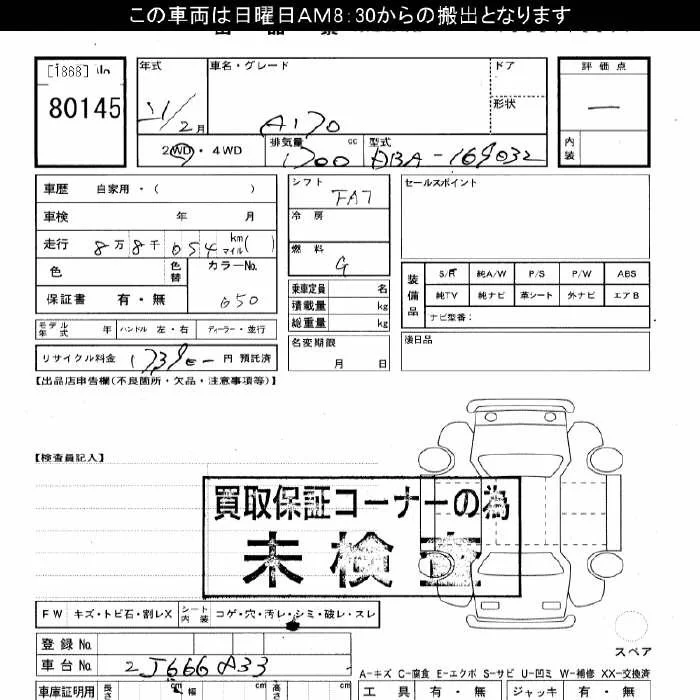 この車両は日曜日AM8:30からの搬出となります
[1868]
80145
年式
21/2月
車名・グレード
A170
ドア
形状
評価点
―
内装
2WD・4WD
排気量 1700 cc
型式 DBA-169032
車歴 自家用・( )
車検 年 月
走行 8万8千054 km マイル( )
色 色替 カラーNo. 650
保証書 有・無
モデル年式 年 ハンドル 左・右 ディーラー・並行
リサイクル料金 円 預託済
シフト FA7
冷房
燃料 G
乗車定員 名
積載量 kg
総重量 kg
名変期限 月 日
セールスポイント
装備品
S/R 純A/W P/S P/W ABS
純TV 純ナビ 革シート 外ナビ エアB
ナビ型番:
後日品
【出品店申告欄(不良箇所・欠品・注意事項等)】
【検査員記入】
買取保証コーナーの為
未検査
FW キズ・トビ石・割レX シート内装 コゲ・穴・汚レ・シミ・破レ・スレ
登録No.
車台No. 2J666A33
スペア
A-キズ C-腐食 E-エクボ S-サビ U-凹ミ W-補修 XX-交換済
車庫証明用 長さ cm 幅 cm 高さ cm
工具 有・無 ジャッキ 有・無